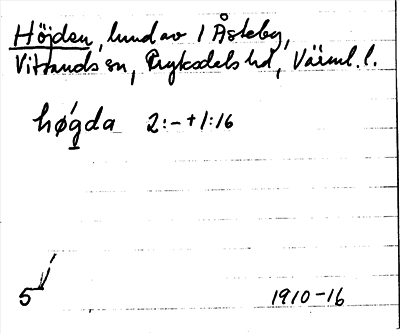 Höjden, lund av 1 Åsteby,
Vitsands sn, Fryksdals hd, Värml. l.
hǿg̲da 2:- + 1:16
5
1910-16